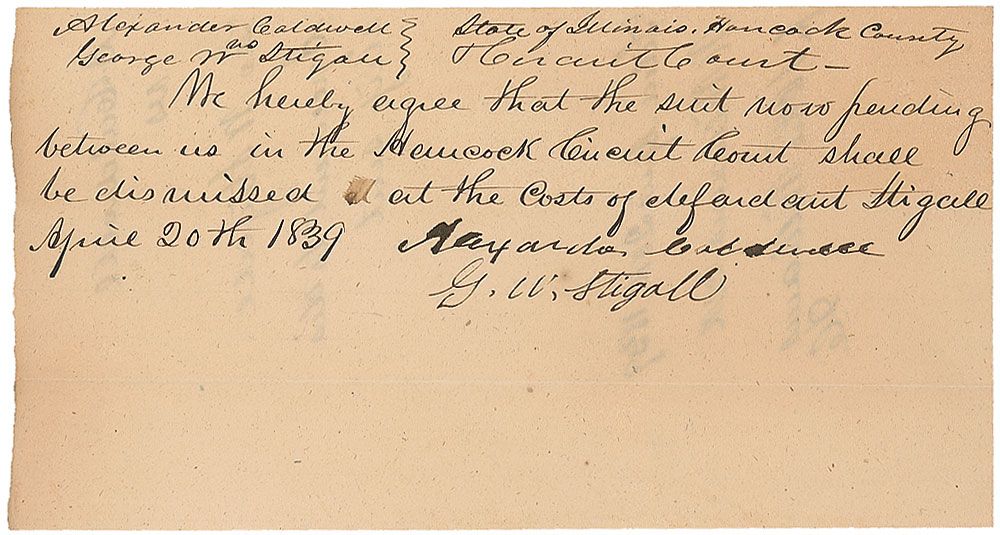 Alexander Coldwell } State of Illinois, Hancock County
vs
George W Stigall } Circuit Court—
We hereby agree that the suit now pending
between us in the Hancock Circuit Court shall
be dismissed at the Costs of defandant Stigall
April 20th 1839 Alexander Coldwell
G. W. Stigall